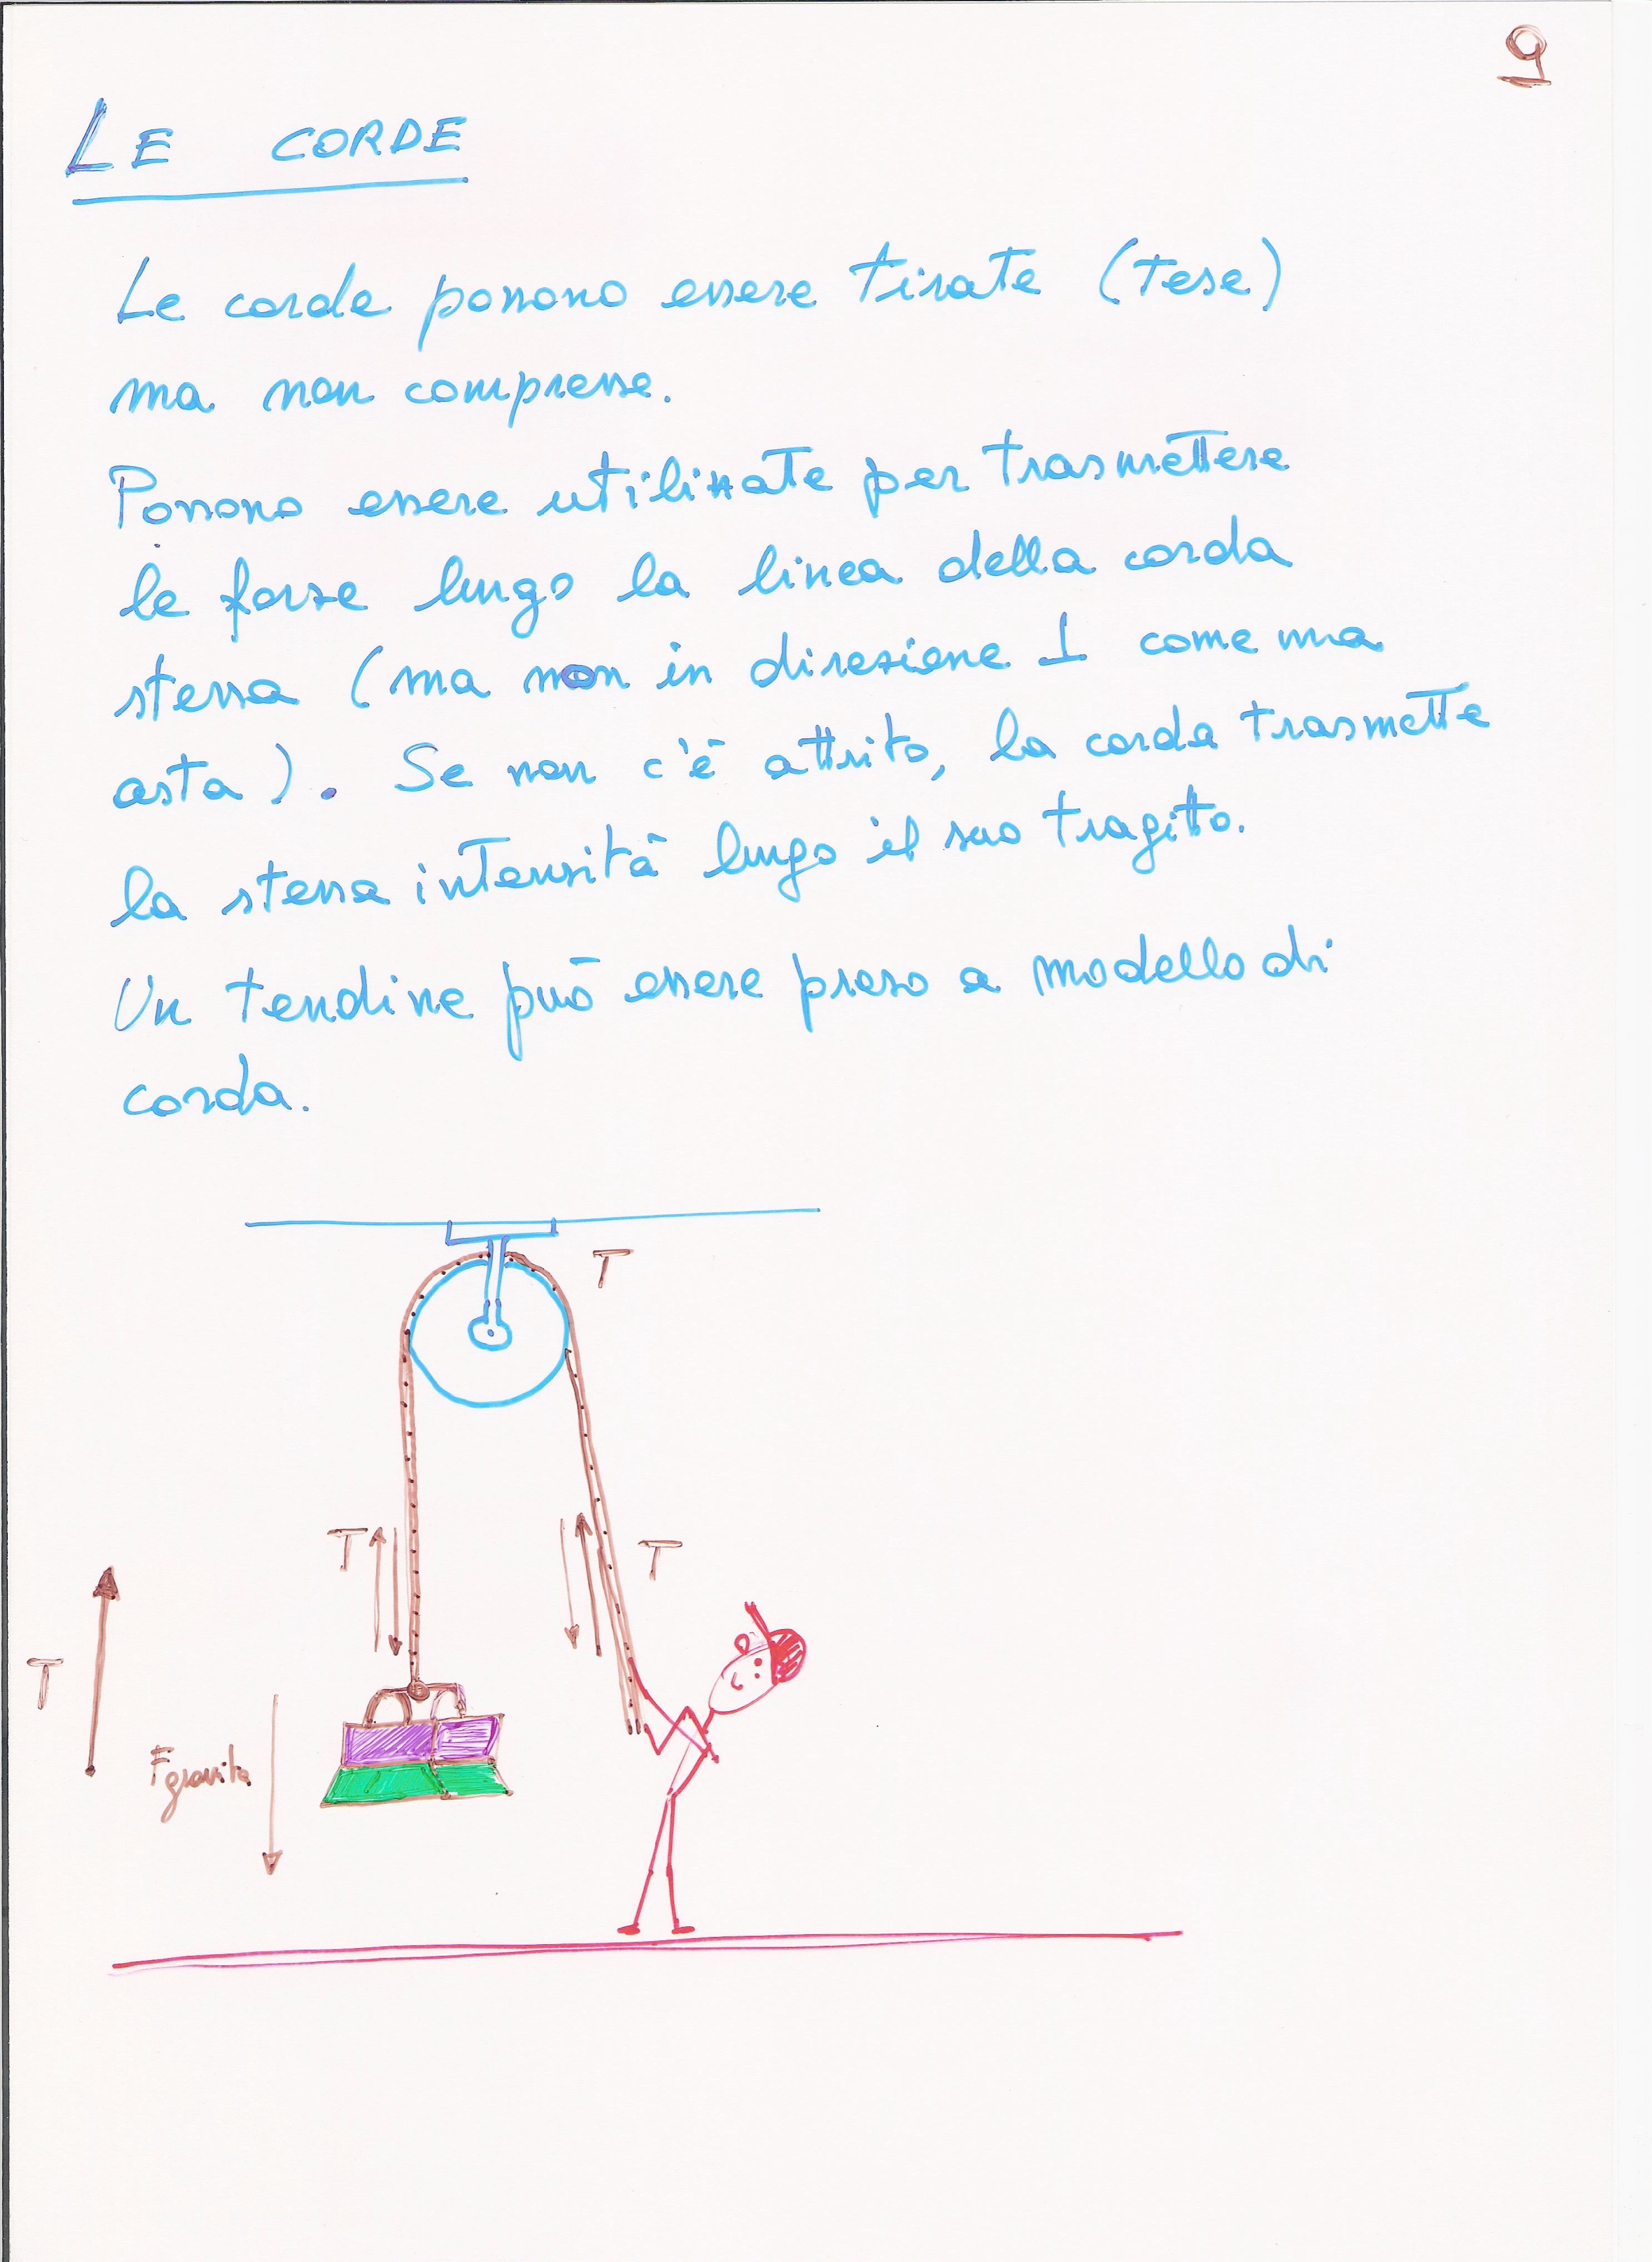 9
LE CORDE
Le corde possono essere tirate (tese)
ma non compresse.
Possono essere utilizzate per trasmettere
le forze lungo la linea della corda
stessa (ma non in direzione ⊥ come una
asta). Se non c'è attrito, la corda trasmette
la stessa intensità lungo il suo tragitto.
Un tendine può essere preso a modello di
corda.
T
T
T
T
Fgravità